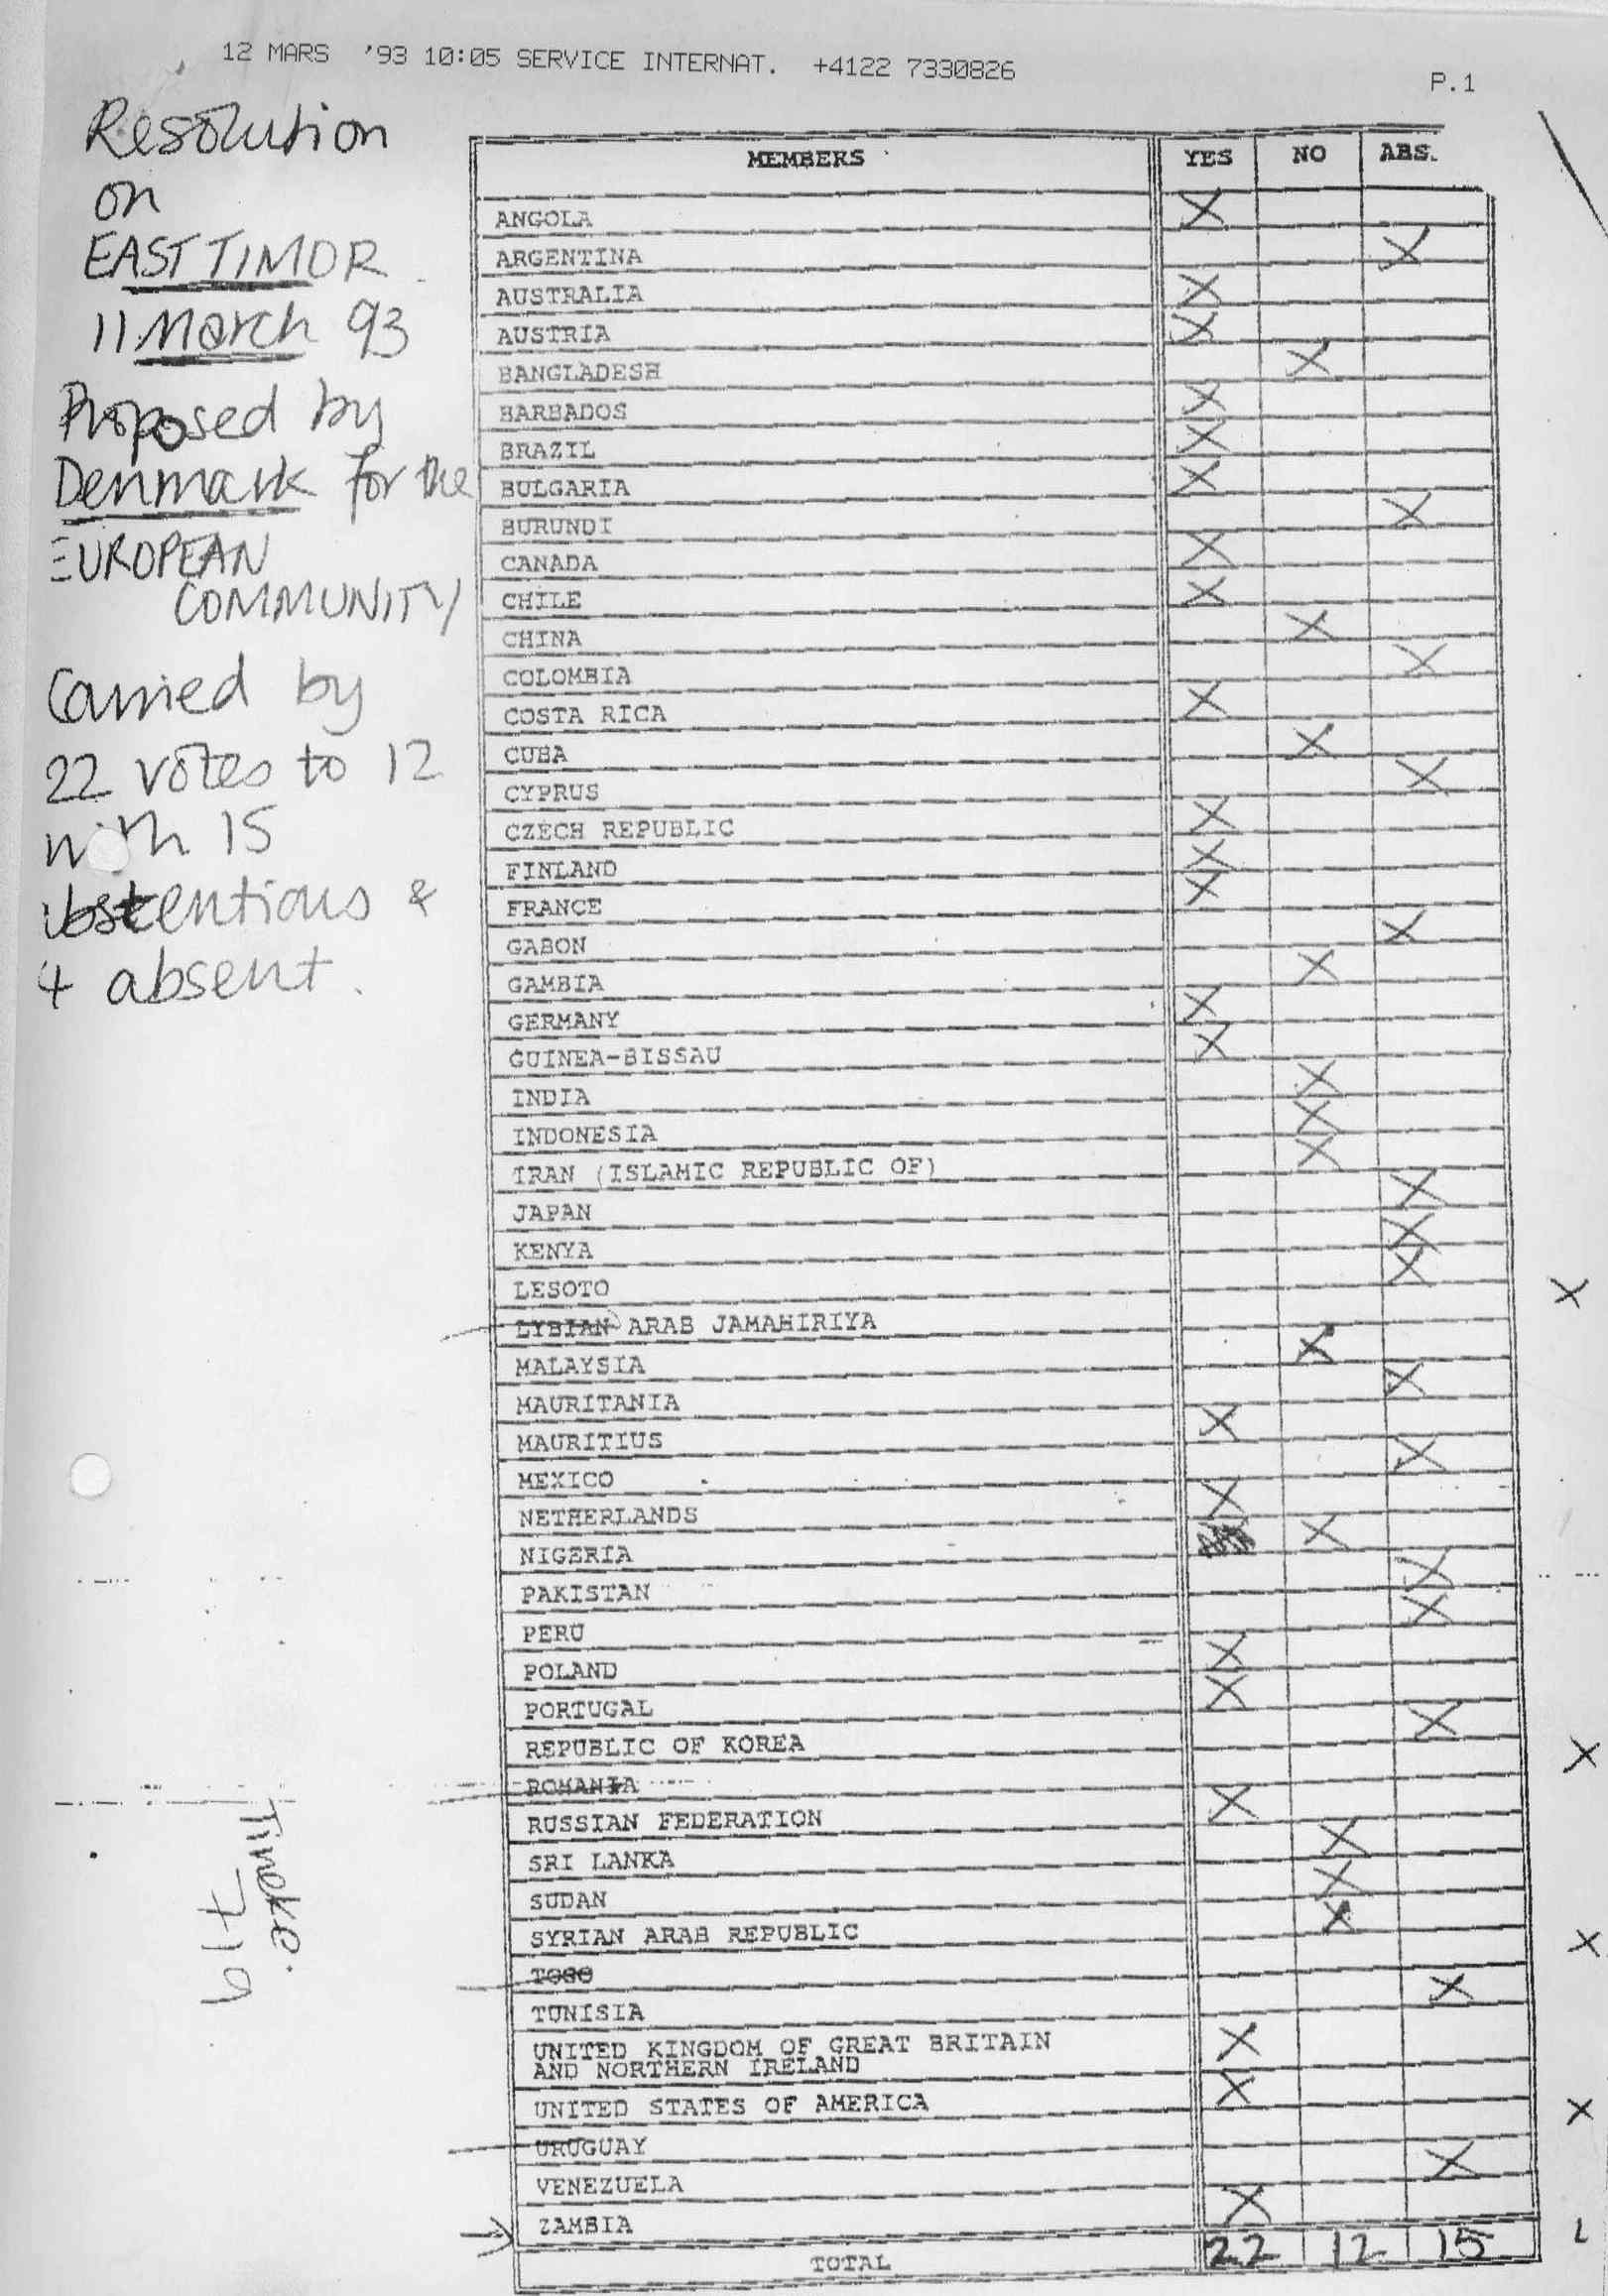 12 MARS '93 10:05 SERVICE INTERNAT. +4122 7330826
P.1
Resolution
on
EAST TIMOR
11 March 93
Proposed by
Denmark for the
EUROPEAN
COMMUNITY
Carried by
22 votes to 12
with 15
abstentions &
4 absent.
MEMBERS YES NO ABS.
ANGOLA X
ARGENTINA X
AUSTRALIA X
AUSTRIA X
BANGLADESH X
BARBADOS X
BRAZIL X
BULGARIA X
BURUNDI X
CANADA X
CHILE X
CHINA X
COLOMBIA X
COSTA RICA X
CUBA X
CYPRUS X
CZECH REPUBLIC X
FINLAND X
FRANCE X
GABON X
GAMBIA X
GERMANY X
GUINEA-BISSAU X
INDIA X
INDONESIA X
IRAN (ISLAMIC REPUBLIC OF) X
JAPAN X
KENYA X
LESOTO X
LYBIAN ARAB JAMAHIRIYA X
MALAYSIA X
MAURITANIA X
MAURITIUS X
MEXICO X
NETHERLANDS X
NIGERIA X
PAKISTAN X
PERU X
POLAND X
PORTUGAL X
REPUBLIC OF KOREA X
ROMANIA X
RUSSIAN FEDERATION X
SRI LANKA X
SUDAN X
SYRIAN ARAB REPUBLIC X
TOGO X
TUNISIA X
UNITED KINGDOM OF GREAT BRITAIN
AND NORTHERN IRELAND X
UNITED STATES OF AMERICA X
URUGUAY X
VENEZUELA X
ZAMBIA X
TOTAL 22 12 15
Tineke.